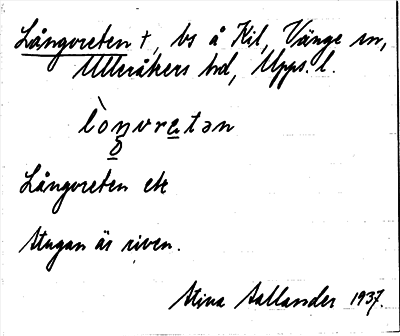 Långvreten †, bs å Kil, Vänge sn,
Ulleråkers hd, Upps. l.
lòŋvratən
g
Långvreten ek
Stugan är riven.
Stina Sallander 1937.